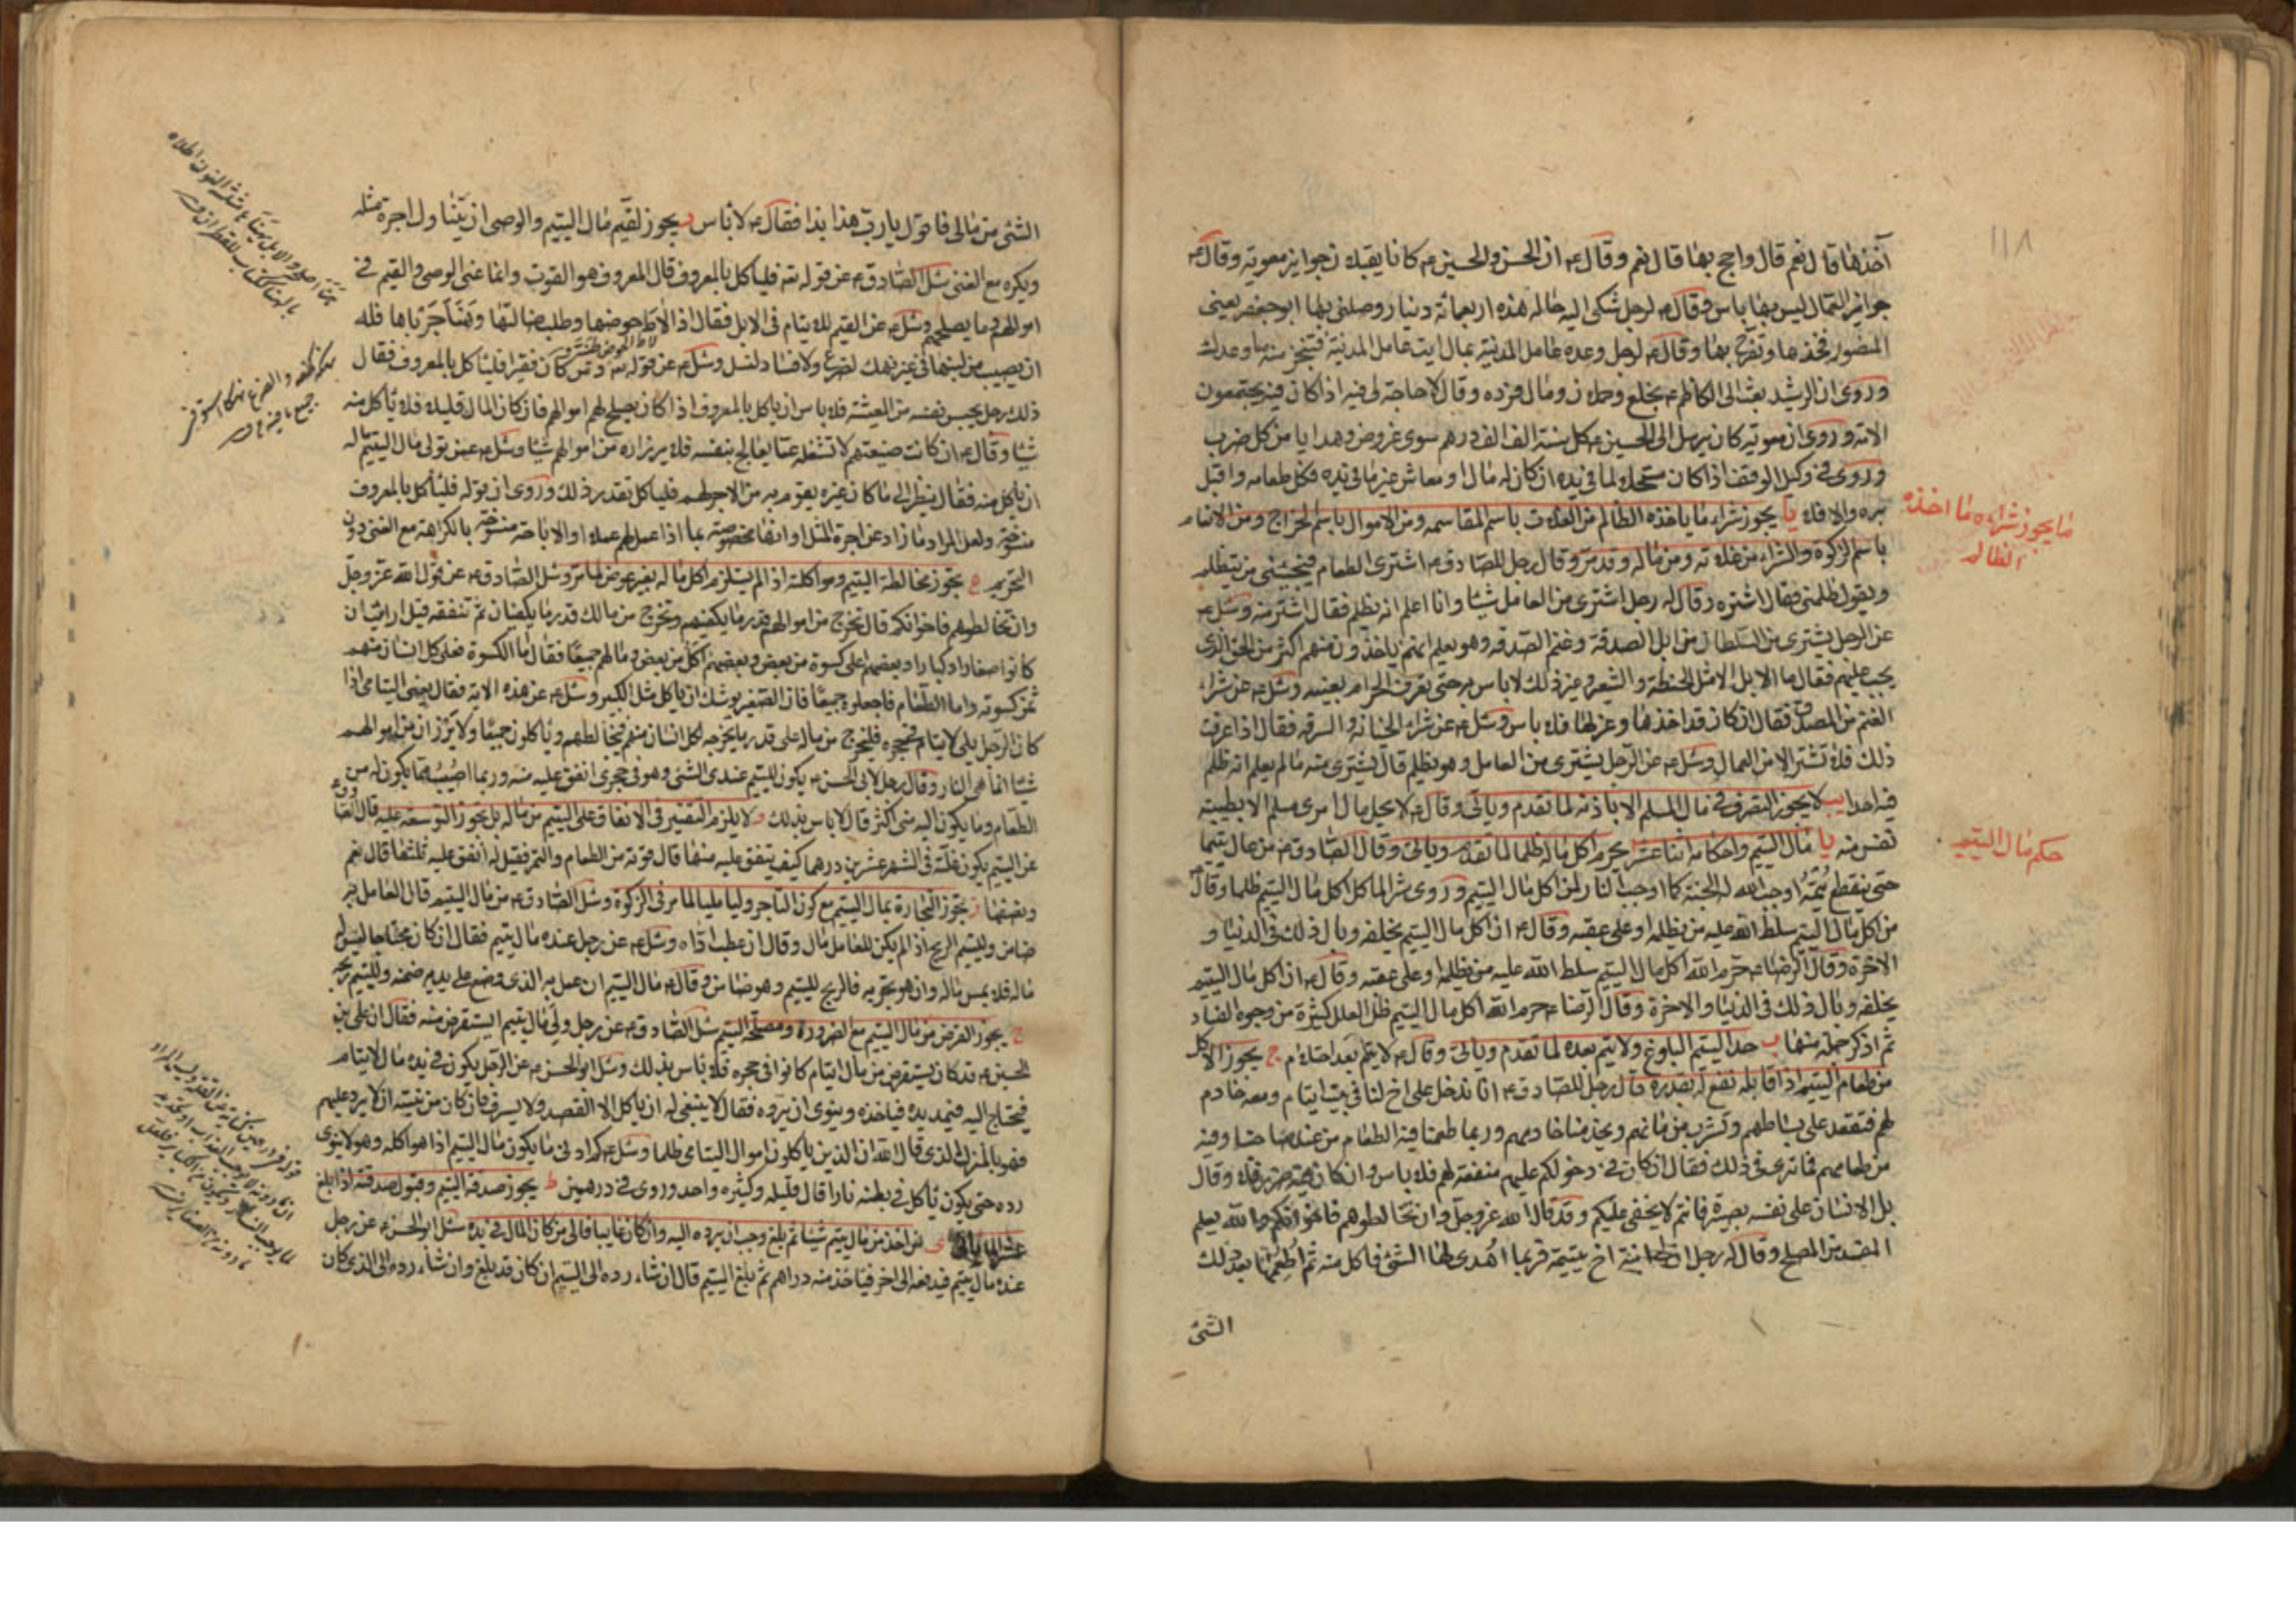 ١١٨
آخذها قال نعم قال واحج بها قال نعم وقال ع ان الحسن والحسين ع كانا يقبلان جوايز معوية وقال ع
جوايز العمال ليس بها باس وقال ع لرجل شكى اليه حاله هذه اربعمائة دينار وصلني بها ابو جعفر يعني
المنصور فخذها وتفرج بها وقال ع لرجل وعده عامل المدينة بمال ايت عامل المدينة فتنجز منه ما وعدك
وروى ان الرشيد بعث الى الكاظم ع بخلع وحملان ومال فرده وقال لا حاجة لي فيه اذا كان فيه يجتمعون
الامة وروى ان معوية كان يرسل الى الحسين ع كل سنة الف الف درهم سوى عروض وهدايا من كل ضرب
وروى في وكيل الوقف اذا كان مستحلا لما في يده ان كان له مال او معاش غير ما في يده فكل طعامه واقبل
بره والا فلا يا يجوز شراء ما ياخذه الظالم من الغلات باسم المقاسمة ومن الاموال باسم الخراج ومن الانعام
ما يجوز شراءه ما اخذه
الظالم
باسم الزكوة والشراء من غلاته ومن ماله وقد مر وقال رجل للصادق ع اشترى الطعام فيجيئني من يتظلم
ويقول ظلمني فقال اشتره وقال له رجل اشترى من العامل شيئا وانا اعلم انه يظلم فقال اشتر منه وسئل ع
عن الرجل يشترى من السلطان من ابل الصدقة وغنم الصدقة وهو يعلم انهم ياخذون منهم اكثر من الحق الذى
يجب عليهم فقال ما الابل الا مثل الحنطة والشعير وغير ذلك لا باس به حتى تعرف الحرام بعينه وسئل ع عن شراء
الغنم من المصدق فقال ان كان قد اخذها وعزلها فلا باس وسئل ع عن شراء الخيانة والسرقة فقال اذا عرفت
ذلك فلا تشتر الا من العمال وسئل ع عن الرجل يشترى من العامل وهو يظلم قال يشترى منه ما لم يعلم انه ظلم
فيه احدا يب لا يجوز التصرف في مال المسلم الا باذنه لما تقدم وياتى وقال ع لا يحل مال امرى مسلم الا بطيبة
نفس منه يا مال اليتيم واحكامه اثنا عشر يحرم اكل ماله ظلما لما تقدم وياتى وقال الصادق ع من عال يتيما
حكم مال اليتيم
حتى ينقطع يتمه اوجب الله له الجنة كما اوجب النار لمن اكل مال اليتيم وروى شر الماكل اكل مال اليتيم ظلما وقال ع
من اكل مال اليتيم سلط الله عليه من يظلمه او على عقبه وقال ع ان اكل مال اليتيم يخلفه وبال ذلك في الدنيا و
الاخرة وقال الرضا ع حرم الله اكل مال اليتيم سلط الله عليه من يظلمه او على عقبه وقال ع ان اكل مال اليتيم
يخلفه وبال ذلك في الدنيا والاخرة وقال الرضا ع حرم الله اكل مال اليتيم ظلما لعلل كثيرة من وجوه الفساد
ثم اذكر جملة منها ب حد اليتيم البلوغ ولا يتم بعده لما تقدم وياتى وقال ع لا يتم بعد احتلام ج يجوز الاكل
من طعام اليتيم اذا قابله نفع له بقدره قال رجل للصادق ع انا ندخل على اخ لنا في بيت ايتام ومعه خادم
لهم فنقعد على بساطهم ونشرب من مائهم ويخدمنا خادمهم وربما طعمنا فيه الطعام من عند صاحبنا وفيه
من طعامهم فما ترى في ذلك فقال ان كان في دخولكم عليهم منفعة لهم فلا باس وان كان فيه ضرر فلا وقال
بل الانسان على نفسه بصيرة فانتم لا يخفى عليكم وقد قال الله عز وجل وان تخالطوهم فاخوانكم والله يعلم
المفسد من المصلح وقال له رجل ان لى ابنة اخ يتيمة فربما اهدى لها الشئ فاكل منه ثم اطعمها بعد ذلك
الشئ
الشئ من مالى فاقول يا رب هذا بذا فقال ع لا باس د يجوز لقيم مال اليتيم والوصى ان يتناول اجرة مثله
ويكره مع الغنى سئل الصادق ع عن قوله تع فلياكل بالمعروف قال المعروف هو القوت وانما عنى الوصى والقيم في
اموالهم وما يصلحهم وسئل ع عن القيم للايتام في الابل فقال اذا لاط حوضها وطلب ضالتها وهنا جرباها فله
ان يصيب من لبنها في غير نهك لضرع ولا فساد لنسل وسئل ع عن قوله تع ومن كان فقيرا فلياكل بالمعروف فقال
ذلك رجل يحبس نفسه من المعيشة فلا باس ان ياكل بالمعروف اذا كان يصلح لهم اموالهم فان كان المال قليلا فلا ياكل منه
شيئا وقال ع ان كانت ضيعتهم لا تشغله عما يعالج بنفسه فلا يرزاه من اموالهم شيئا وسئل ع عمن تولى مال اليتيم ماله
ان ياكل منه فقال ينظر الى ما كان غيره يقوم به من الاجر لهم فلياكل بقدر ذلك وروى ان قوله فلياكل بالمعروف
منسوخة ولعل المراد ما زاد عن اجرة المثل او انها مخصوصة بما اذا عمل لهم عملا او الاباحة منسوخة بالكراهة مع الغنى دون
التحريم ه يجوز مخالطة اليتيم ومواكلته اذا لم يستلزم اكل ماله بغير عوض لما مر وسئل الصادق ع عن قول الله عز وجل
وان تخالطوهم فاخوانكم قال تخرج من اموالهم قدر ما يكفيهم وتخرج من مالك قدر ما يكفيك ثم تنفقه قيل ارايت ان
كانوا صغارا وكبارا وبعضهم اعلى كسوة من بعض وبعضهم اكل من بعض ومالهم جميعا فقال اما الكسوة فعلى كل انسان منهم
ثمن كسوته واما الطعام فاجعلوه جميعا فان الصغير يوشك ان ياكل مثل الكبير وسئل ع عن هذه الاية فقال يعنى اليتامى اذا
كان الرجل يلى لايتام في حجره فليخرج من ماله على قدر ما يخرجه لكل انسان منهم فيخالطهم وياكلون جميعا ولا يرزأن من اموالهم
شيئا انما هى النار وقال رجل لابى الحسن ع يكون لليتيم عندى الشئ وهو في حجرى انفق عليه منه وربما اصبت مما يكون له من
الطعام وما يكون اليه منى اكثر قال لا باس بذلك و لا يلزم التقتير في الانفاق على اليتيم من ماله بل يجوز التوسعة عليه
عن اليتيم يكون غلته في الشهر عشرين درهما كيف ينفق عليه منها قال قوته من الطعام والتمر فقيل له انفق عليه ثلثها قال نعم
ونصفها ز يجوز التجارة بمال اليتيم مع كون التاجر وليا مليا لما مر في الزكوة وسئل الصادق ع من مال اليتيم قال العامل به
ضامن ولليتيم الربح اذا لم يكن للعامل مال وقال ان عطب اداه وسئل ع عن رجل عنده مال يتيم فقال ان كان محتاجا ليس له
مال فلا يمس ماله وان هو تجر به فالربح لليتيم وهو ضامن وقال ع مال اليتيم ان عمل به الذى وضع على يديه ضمنه ولليتيم ربحه
ح يجوز القرض من مال اليتيم مع الضرورة ومصلحة اليتيم سئل الصادق ع عن رجل ولى مال يتيم ايستقرض منه فقال ان على بن
الحسين ع قد كان يستقرض من مال ايتام كانوا في حجره فلا باس بذلك وسئل ابو الحسن ع عن الرجل يكون في يده مال لايتام
فيحتاج اليه فيمد يده فياخذه وينوى ان يرده فقال لا ينبغى له ان ياكل الا القصد ولا يسرف فان كان من نيته ان لا يرد عليهم
فهو بالمنزل الذى قال الله ان الذين ياكلون اموال اليتامى ظلما وسئل ع كم ادنى ما يكون مال اليتيم اذا هو اكله وهو لا ينوى
رده حتى يكون ياكل في بطنه نارا قال قليله وكثيره واحد وروى في درهمين ط يجوز صدقة اليتيم وقبول صدقته اذا بلغ
عشرا لما ياتى ى من اخذ من مال يتيم شيئا ثم بلغ وجب ان يرده اليه وان كان غايبا فالى من كان المال في يده سئل ابو الحسن ع عن رجل
عنده مال ليتيم فيدفعه الى اخر فياخذ منه دراهم ثم بلغ اليتيم قال ان شاء رده الى اليتيم ان كان قد بلغ وان شاء رده الى الذى كان